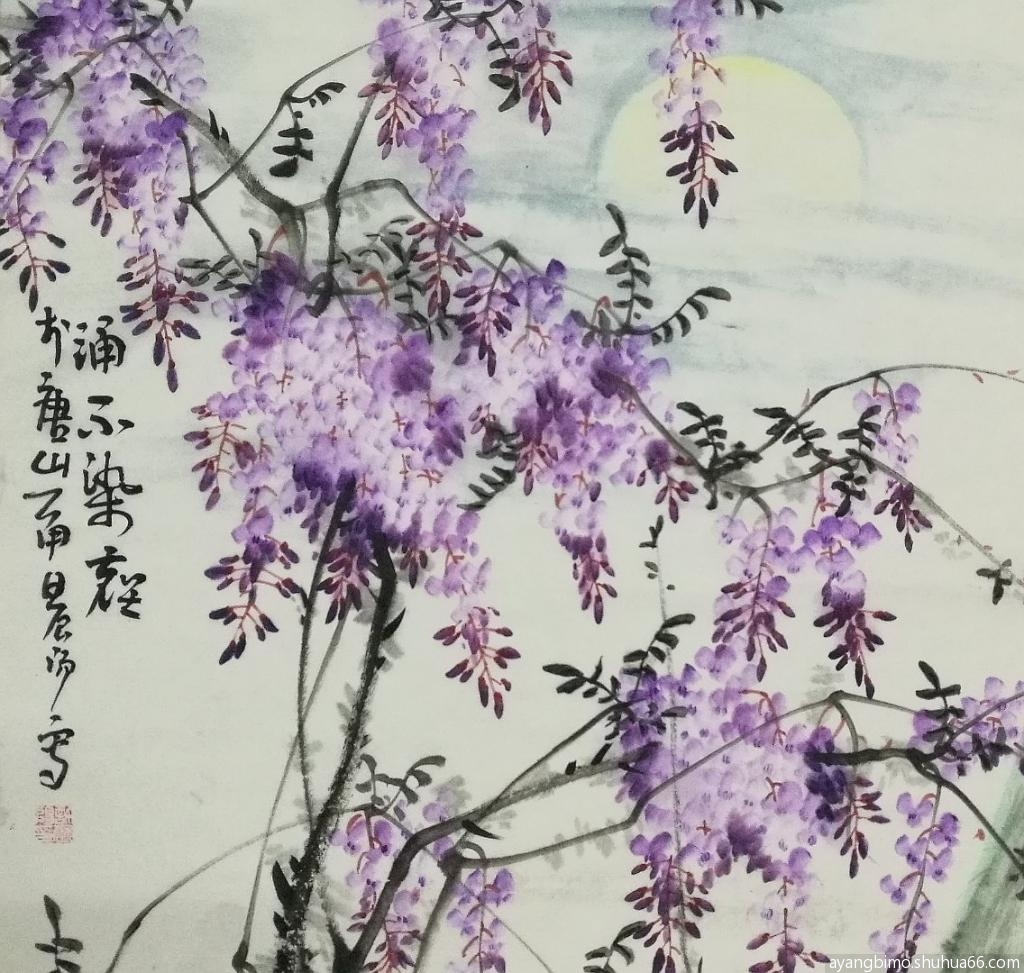 涌不染
於唐山晨阳写
ayangbimo.shuhua66.com